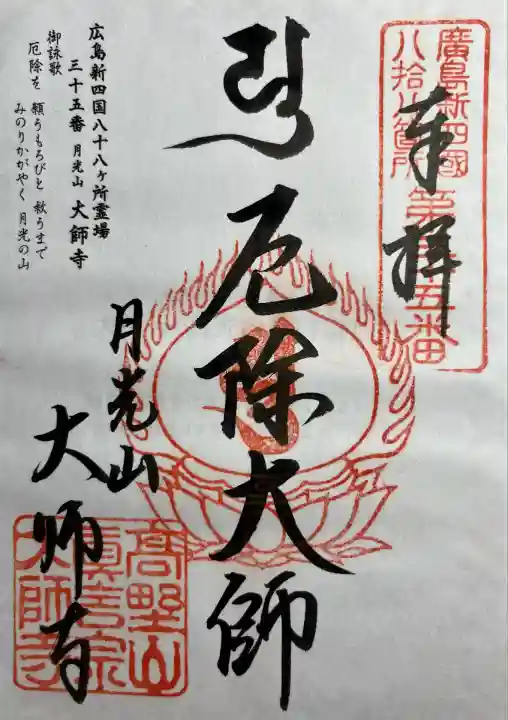 廣島新四國
八拾八箇所
第三十五番
奉拝
厄除大師
月光山
大师寺
高野山
真言宗
大師寺
広島新四国八十八ヶ所霊場
三十五番 月光山 大師寺
御詠歌
厄除を 願うもろびと 救うまで
みのりかがやく 月光の山